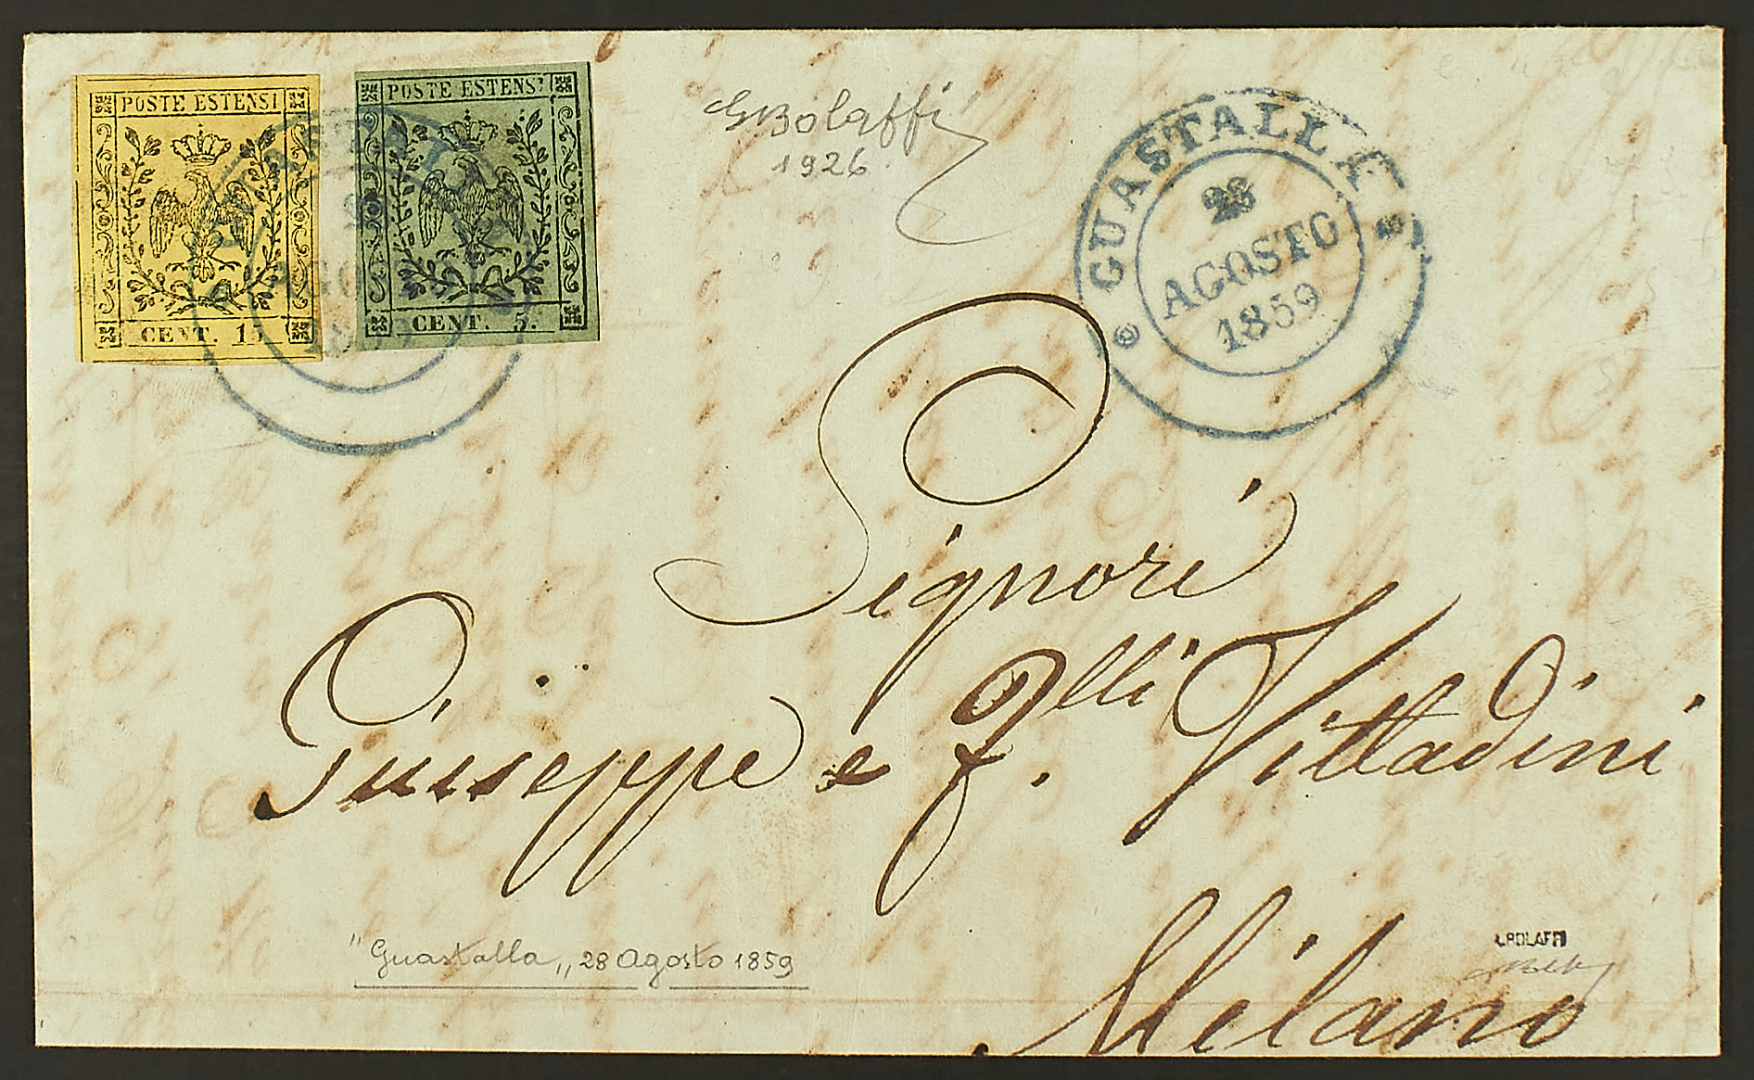 POSTE ESTENSI
CENT. 15
POSTE ESTENSI
CENT. 5.
GBolaffi
1926.
GUASTALLA
28
AGOSTO
1859
Signori
Giuseppe e F.lli Vittadini
Milano
"Guastalla„ 28 Agosto 1859
A.BOLAFFI